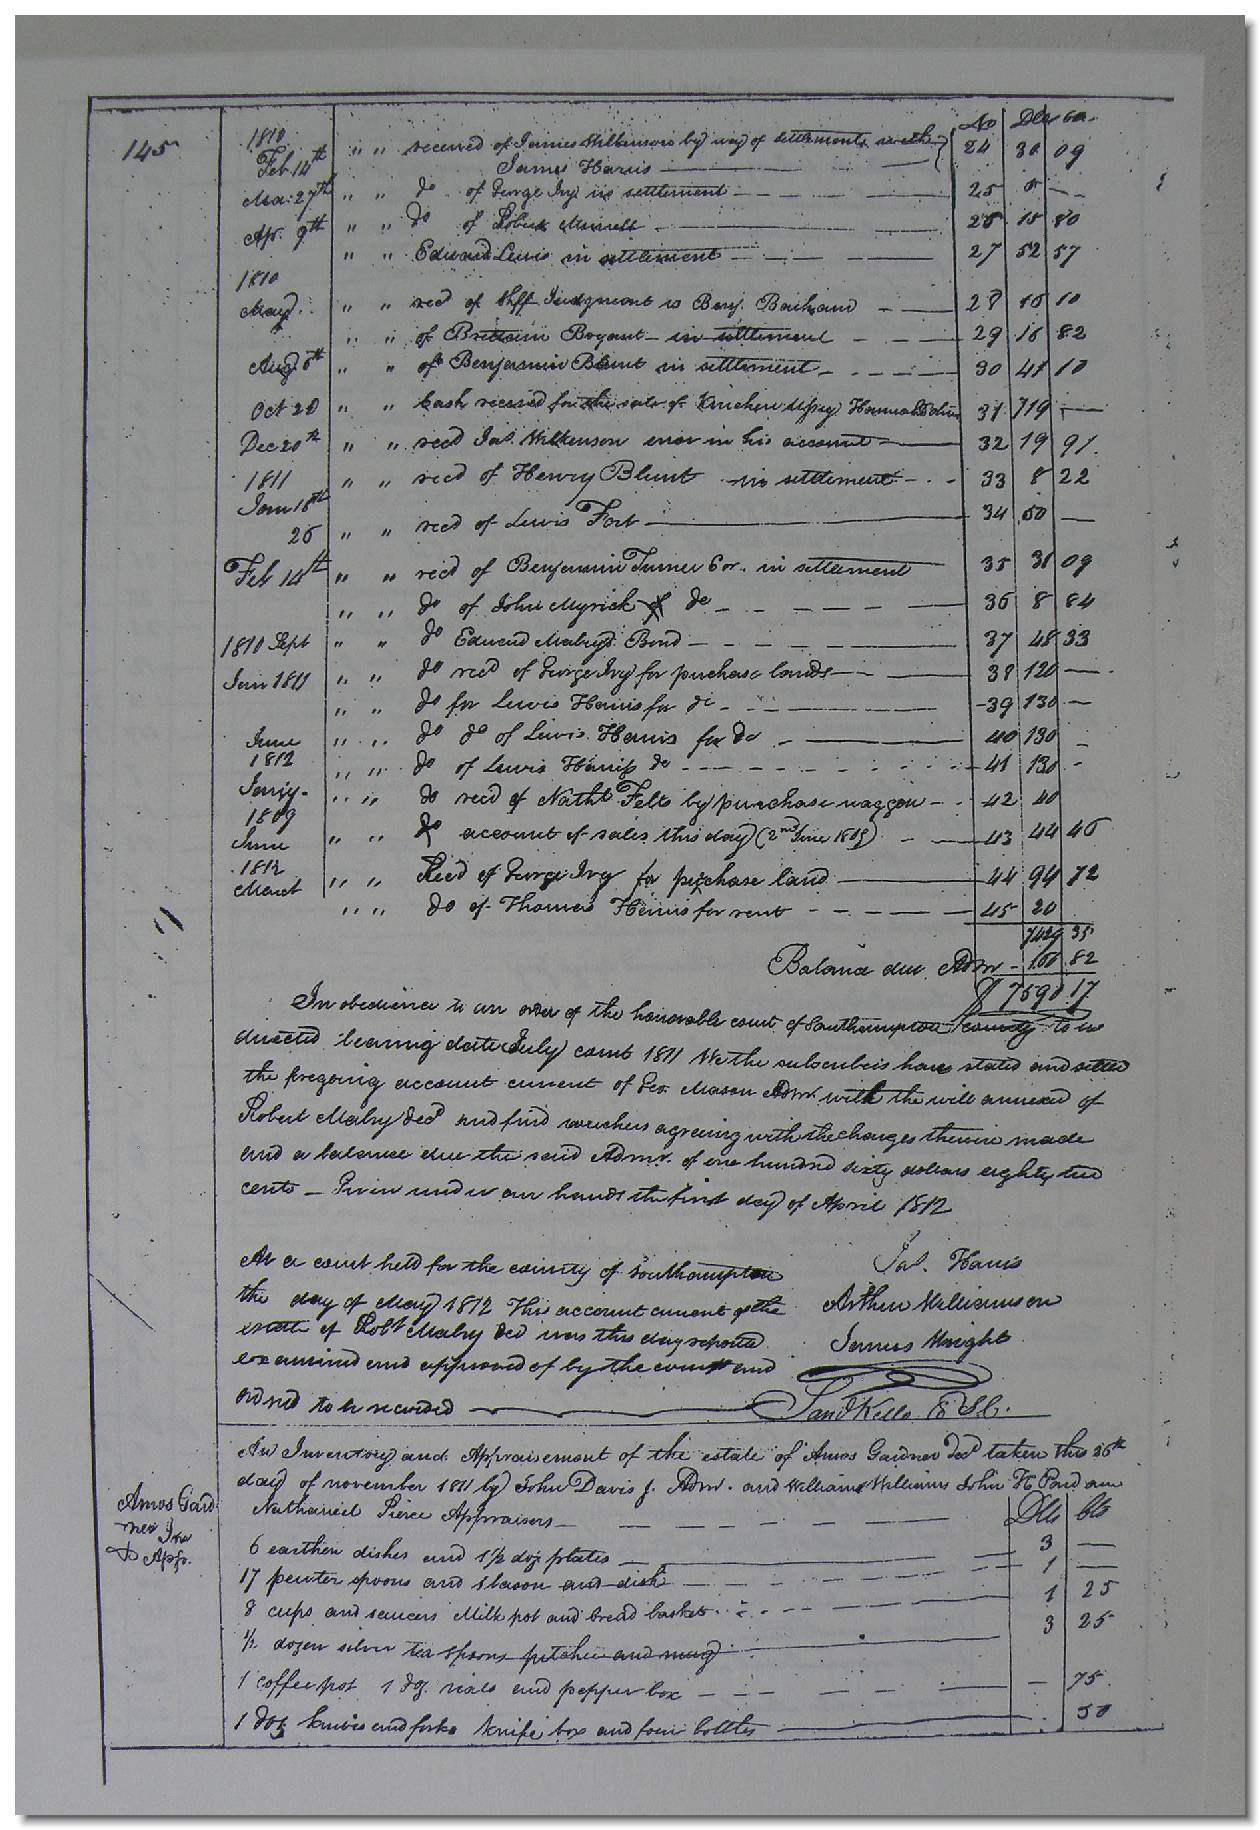 No Dls cts
145
1810
Feb 14th " " received of James Wilkinson by way of settlements with 24 30 09
James Harris
Mar: 27th " " do of George Ivy in settlement 25
Apr. 9th " " do of Robert Murrell 26 15 80
" " Edward Lewis in settlement 27 52 57
1810
May " " recd of Shff Judgment vs Benj. 28 10 10
" " of Brittain Bryant in settlement 29 16 82
Aug 8th " " of Benjamin Blunt in settlement 30 41 10
Oct 20 " " Cash received for the sale of Kinchen Hannah 31 719 —
Dec 20th " " recd Jas. Wilkenson error in his account 32 19 91.
1811
Jany 18th " " recd of Henry Blunt in settlement 33 8 22
26 " " recd of Lewis Fort 34 50 —
Feb 14th " " recd of Benjamin Turner Cor. in settlement 35 31 09
" " do of John Myrick of do 36 8 84
1810 Sept " " do Edward Mabrys Bond 37 48 33
Jan 1811 " " do recd of George Ivy for purchase lands 38 120 —
" " do for Lewis Harris for do 39 130 —
June " " do do of Lewis Harris for do 40 130 -
1812 " " do of Lewis Harris do 41 130 -
Jany
" " do recd of Nathl Felts by purchase waggon 42 40
1809
June " " do account of sales this day (2nd June 1809) 43 44 46
1812
March " " Recd of George Ivy for purchase land 44 94 72
" " do of Thomas Harris for rent 45 20
7429 35
Balance due Admr - 160 82
$ 7590.17
In obedience to an order of the honorable court of Southampton county to us
directed bearing date July court 1811 We the subscribers have stated and settled
the foregoing account current of Geo. Mason Admr. with the will annexed of
Robert Mabry decd and find vouchers agreeing with the charges therein made
and a balance due the said Admr. of one hundred sixty dollars eighty two
cents — Given under our hands the first day of April 1812
Jas. Harris
Arthur Williamson
James Wright
At a court held for the county of Southampton
the day of May 1812 This account current of the
estate of Robt Mabry decd was this day reported
examined and approved of by the court and
ordred to be recorded
Saml Kello
Amos Gard
ner Inv
& Appr.
An Inventory and Appraisement of the estate of Amos Gardner decd taken this 26th
day of november 1811 by John Davis j. Admr. and William Williams John H. Pond and
Nathaniel Pierce Appraisers Dlls Cts
6 earthen dishes and 1½ doz plates 3 —
17 pewter spoons and 1 bason and dish 1 —
8 cups and saucers Milk pot and bread basket 1 25
½ dozen silver tea spoons pitcher and mug 3 25
1 coffee pot 1 doz. and pepper box - 75.
1 doz knives and forks knife box and four bottles . 50